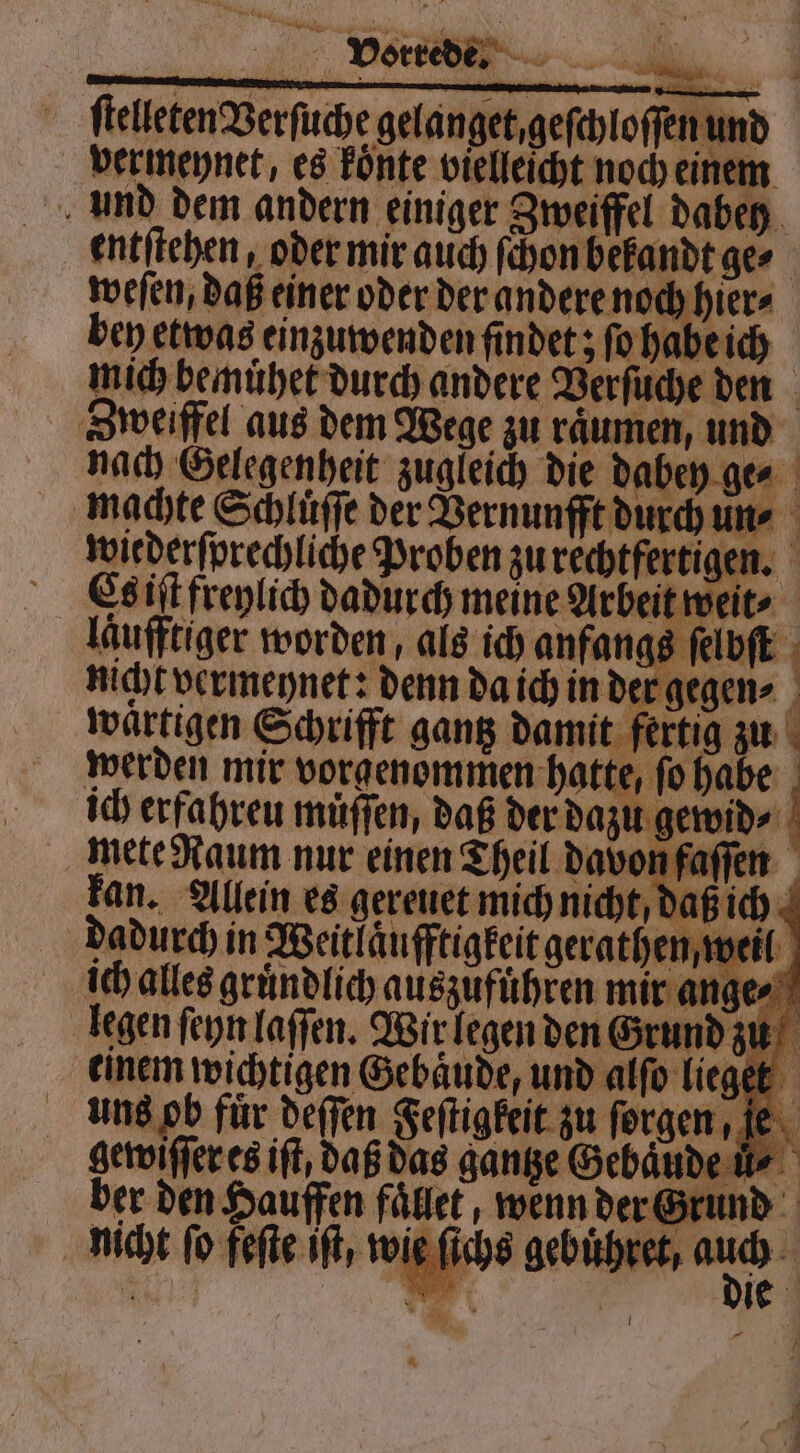 Vorrede.
ſtelleten Verſuche gelanget, geſchloſſen und
vermeynet, es koͤnte vielleicht noch einem
und dem andern einiger Zweiffel dabey
entſtehen, oder mir auch ſchon bekandt ge⸗
weſen, daß einer oder der andere noch hier⸗
bey etwas einzuwenden findet; ſo habe ich
mich bemuͤhet durch andere Verſuche den
Zweiffel aus dem Wege zu raͤumen, und
nach Gelegenheit zugleich die dabey ge⸗
machte Schluͤſſe der Vernunfft durch un⸗
wiederſprechliche Proben zu rechtfertigen.
Es iſt freylich dadurch meine Arbeit weit⸗
laͤufftiger worden, als ich anfangs ſelbſt
nicht vermeynet: denn da ich in der gegen⸗
waͤrtigen Schrifft gantz damit fertig zu
werden mir vorgenommen hatte, ſo habe
ich erfahreu muͤſſen, daß der dazu gewid⸗
mete Raum nur einen Theil davon faſſen
kan. Allein es gereuet mich nicht, daß ich
dadurch in Weitlaͤufftigkeit gerathen, weil
ich alles gruͤndlich auszufuͤhren mir ange⸗
legen ſeyn laſſen. Wir legen den Grund zu
einem wichtigen Gebaͤude, und alſo lieget
uns ob fuͤr deſſen Feſtigkeit zu ſorgen, je
gewiſſer es iſt, daß das gantze Gebaͤude uͤ⸗
ber den Hauffen faͤllet, wenn der Grund
nicht ſo feſte iſt, wie ſichs gebuͤhret, auch
die